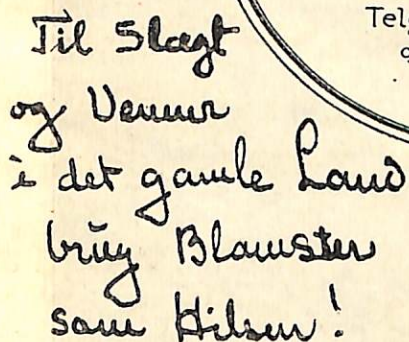 Tel
Til Slægt
og Venner
i det gamle Land
brug Blomster
som Hilsen!